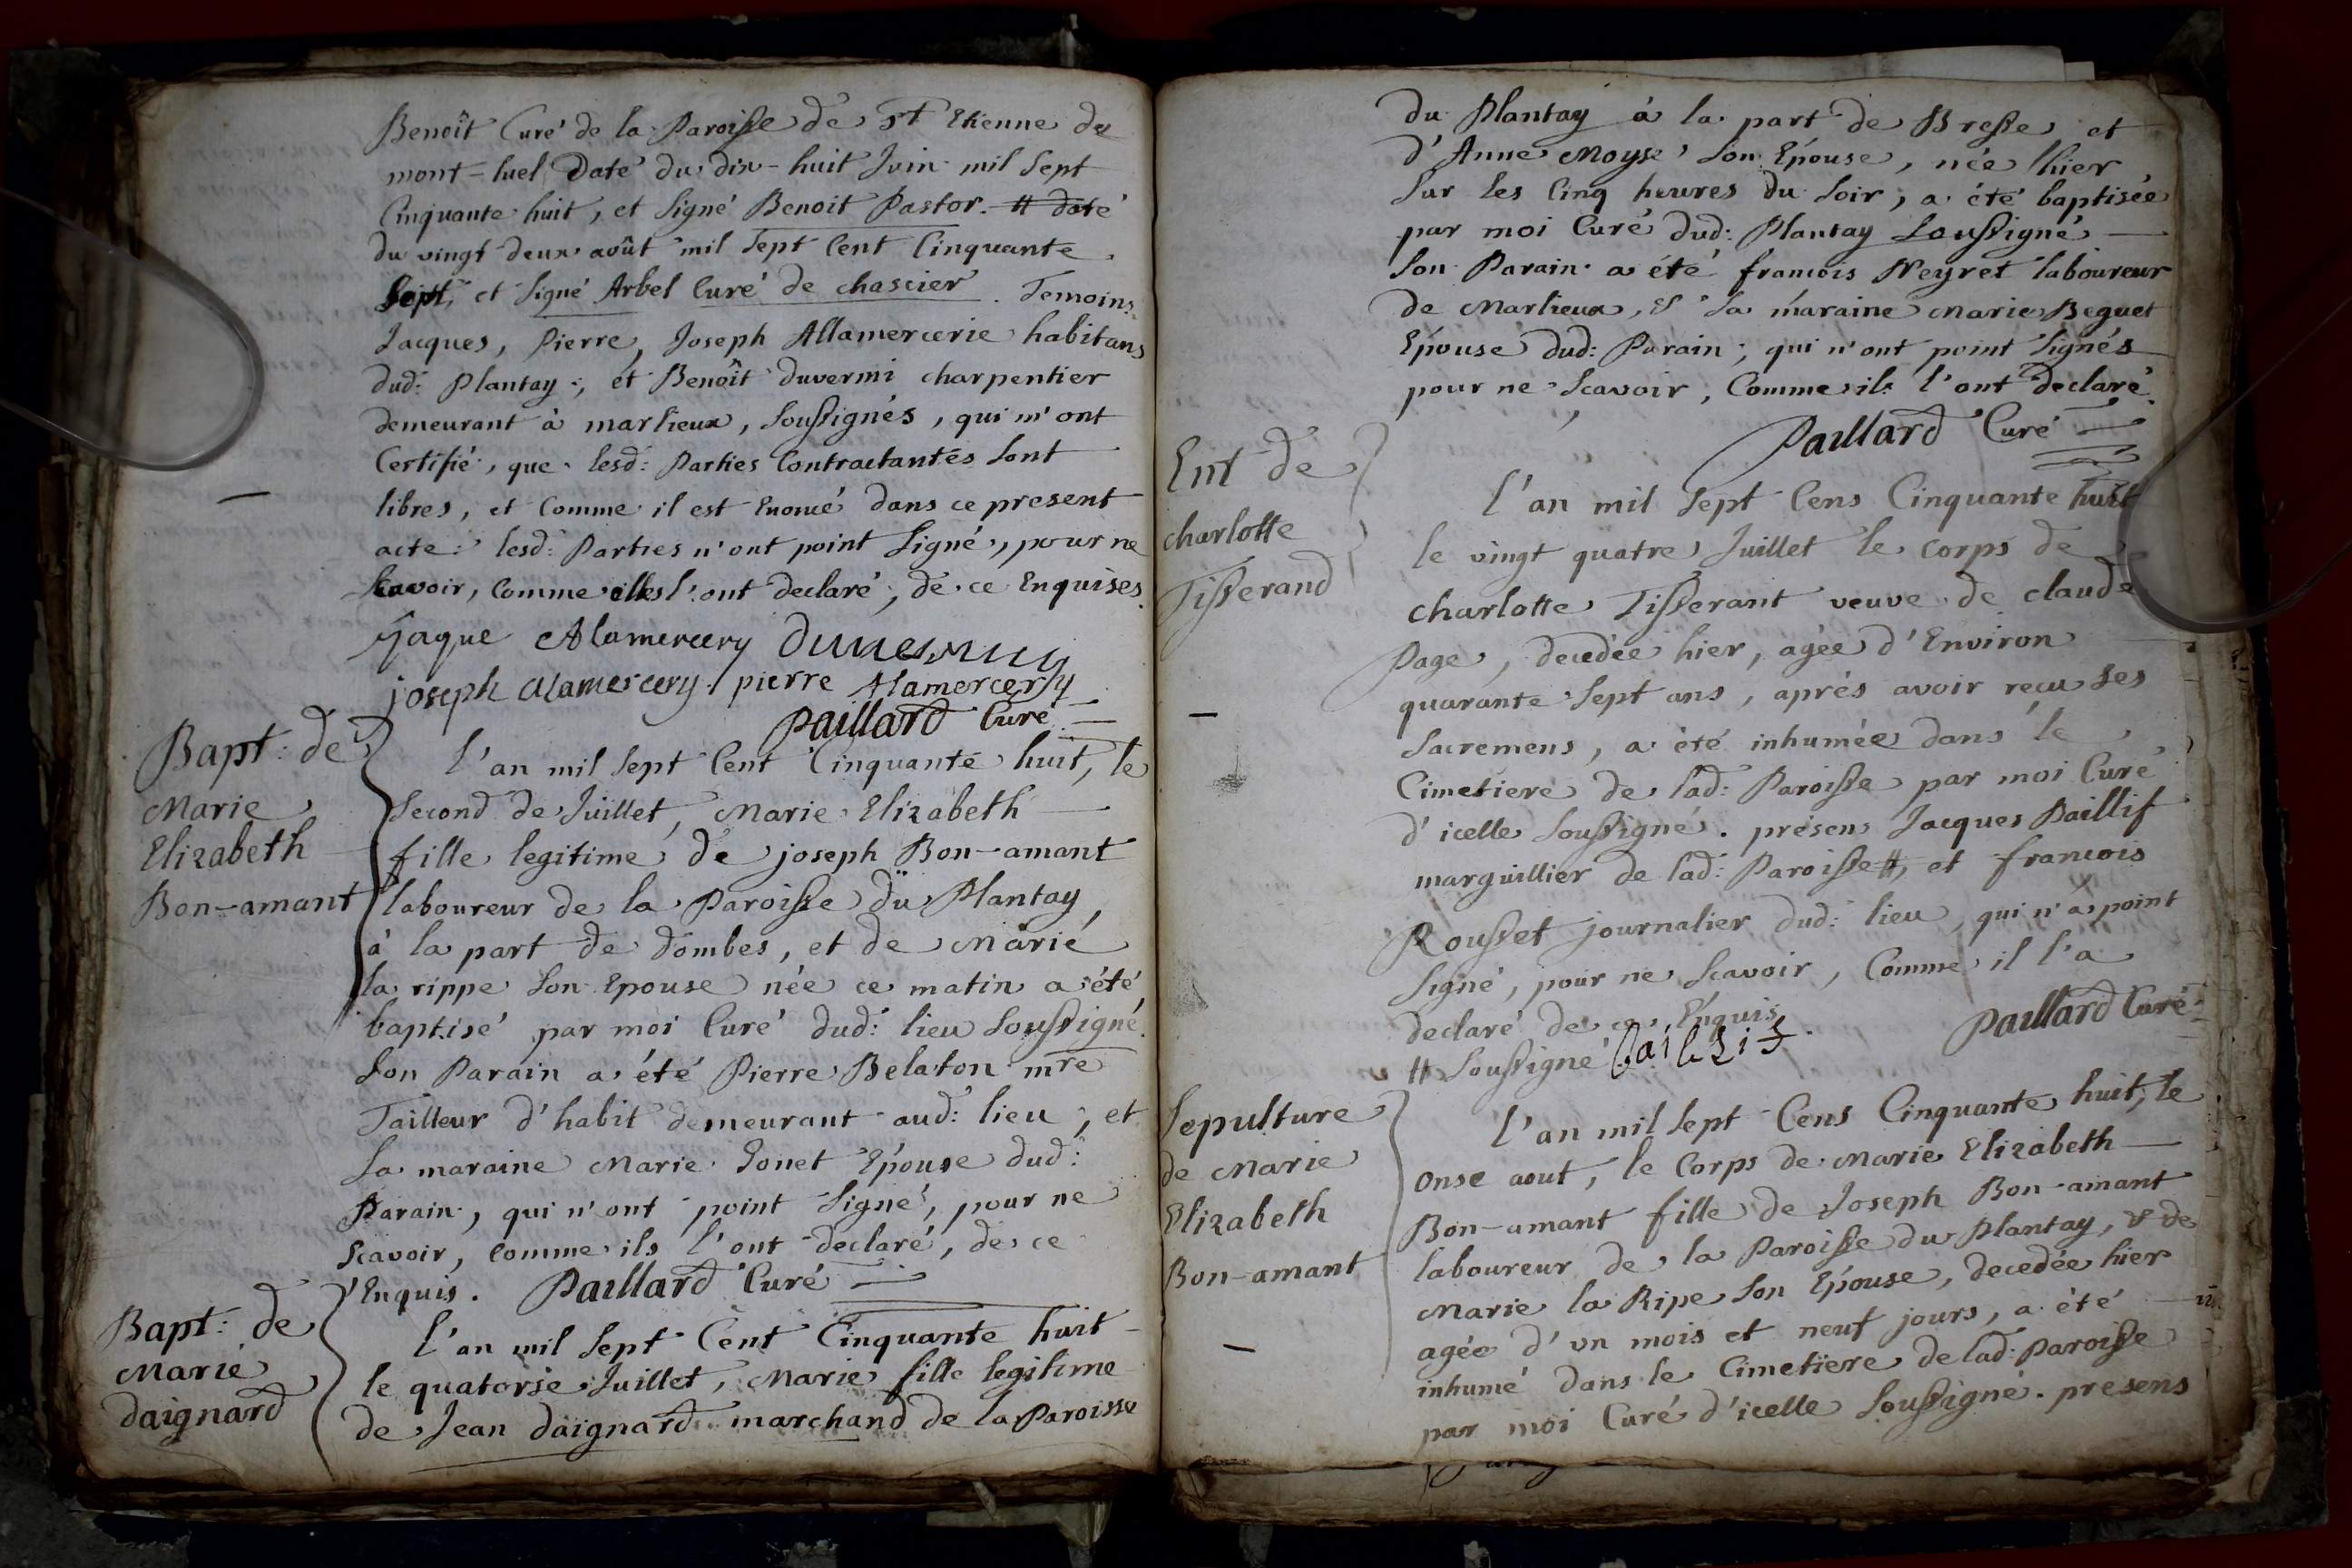 Benoît Curé de la Paroisse de St Etienne de
mont-luel Daté du dix-huit Juin mil Sept
Cinquante huit, et Signé Benoit Pastor. # daté
du vingt deux août mil Sept Cent Cinquante
Sept, et Signé Arbel Curé de chascier. Temoins
Jacques, Pierre, Joseph Allamercerie habitans
dud: Plantay; et Benoît duvermi charpentier
demeurant à marlieux, Soussignés, qui m'ont
Certifié, que lesd: Parties Contractantes Sont
libres, et Comme il est Enoncé dans ce present
acte: lesd: Parties n'ont point Signé, pour ne
Scavoir, Comme elles l'ont declaré, de ce Enquises.
Jaque Alamercery
joseph alamercery pierre Alamercery
Paillard Curé
Bapt: de
Marie
Elizabeth
Bon-amant
L'an mil Sept Cent Cinquante huit, le
Second de Juillet, Marie Elizabeth
fille legitime de joseph Bon-amant
laboureur de la Paroisse du Plantay,
à la part de Dombes, et de Marie
la rippe Son Epouse née ce matin a été
baptisé par moi Curé dud: lieu Soussigné.
Son Parain a été Pierre Belaton mre
Tailleur d'habit demeurant aud: lieu; et
Sa maraine Marie Gonet Epouse dud:
Parain, qui n'ont point Signé, pour ne
Scavoir, Comme ils l'ont declaré, de ce
Enquis. Paillard Curé
Bapt: de
Marie
daignard
L'an mil Sept Cent Cinquante huit
le quatorse Juillet, Marie fille legitime
de Jean daignard marchand de la Paroisse
du Plantay à la part de Bresse, et
d'Anne Moyse Son Epouse, née hier
Sur les Cinq heures du Soir, a été baptisée
par moi Curé dud: Plantay Soussigné
Son Parain a été francois Neyret laboureur
de Marlieux, & Sa maraine Marie Beguet
Epouse dud: Parain; qui n'ont point Signés
pour ne Scavoir, Comme ils l'ont declaré
Paillard Curé
Ent de
charlotte
Tisserand
L'an mil Sept Cens Cinquante huit
le vingt quatre Juillet le Corps de
charlotte Tisserant veuve de claude
Page, decedée hier, agée d'Environ
quarante Sept ans, après avoir recu Ses
Sacremens, a été inhumée dans le
Cimetiere de lad: Paroisse par moi Curé
d'icelle Soussigné. présens Jacques Baillif
marguillier de lad: Paroisse #, et francois
Rousset journalier dud: lieu, qui n'a point
Signé, pour ne Scavoir, Comme il l'a
declaré de ce Enquis. Paillard Curé
# Soussigné
Sepulture
de Marie
Elizabeth
Bon-amant
L'an mil Sept Cens Cinquante huit, le
onse aout, le Corps de Marie Elizabeth
Bon-amant fille de Joseph Bon-amant
laboureur de la Paroisse du Plantay, & de
Marie la Ripe Son Epouse, decedée hier
agée d'un mois et neuf jours, a été
inhumé dans le Cimetiere de lad: Paroisse
par moi Curé d'icelle Soussigné. presens